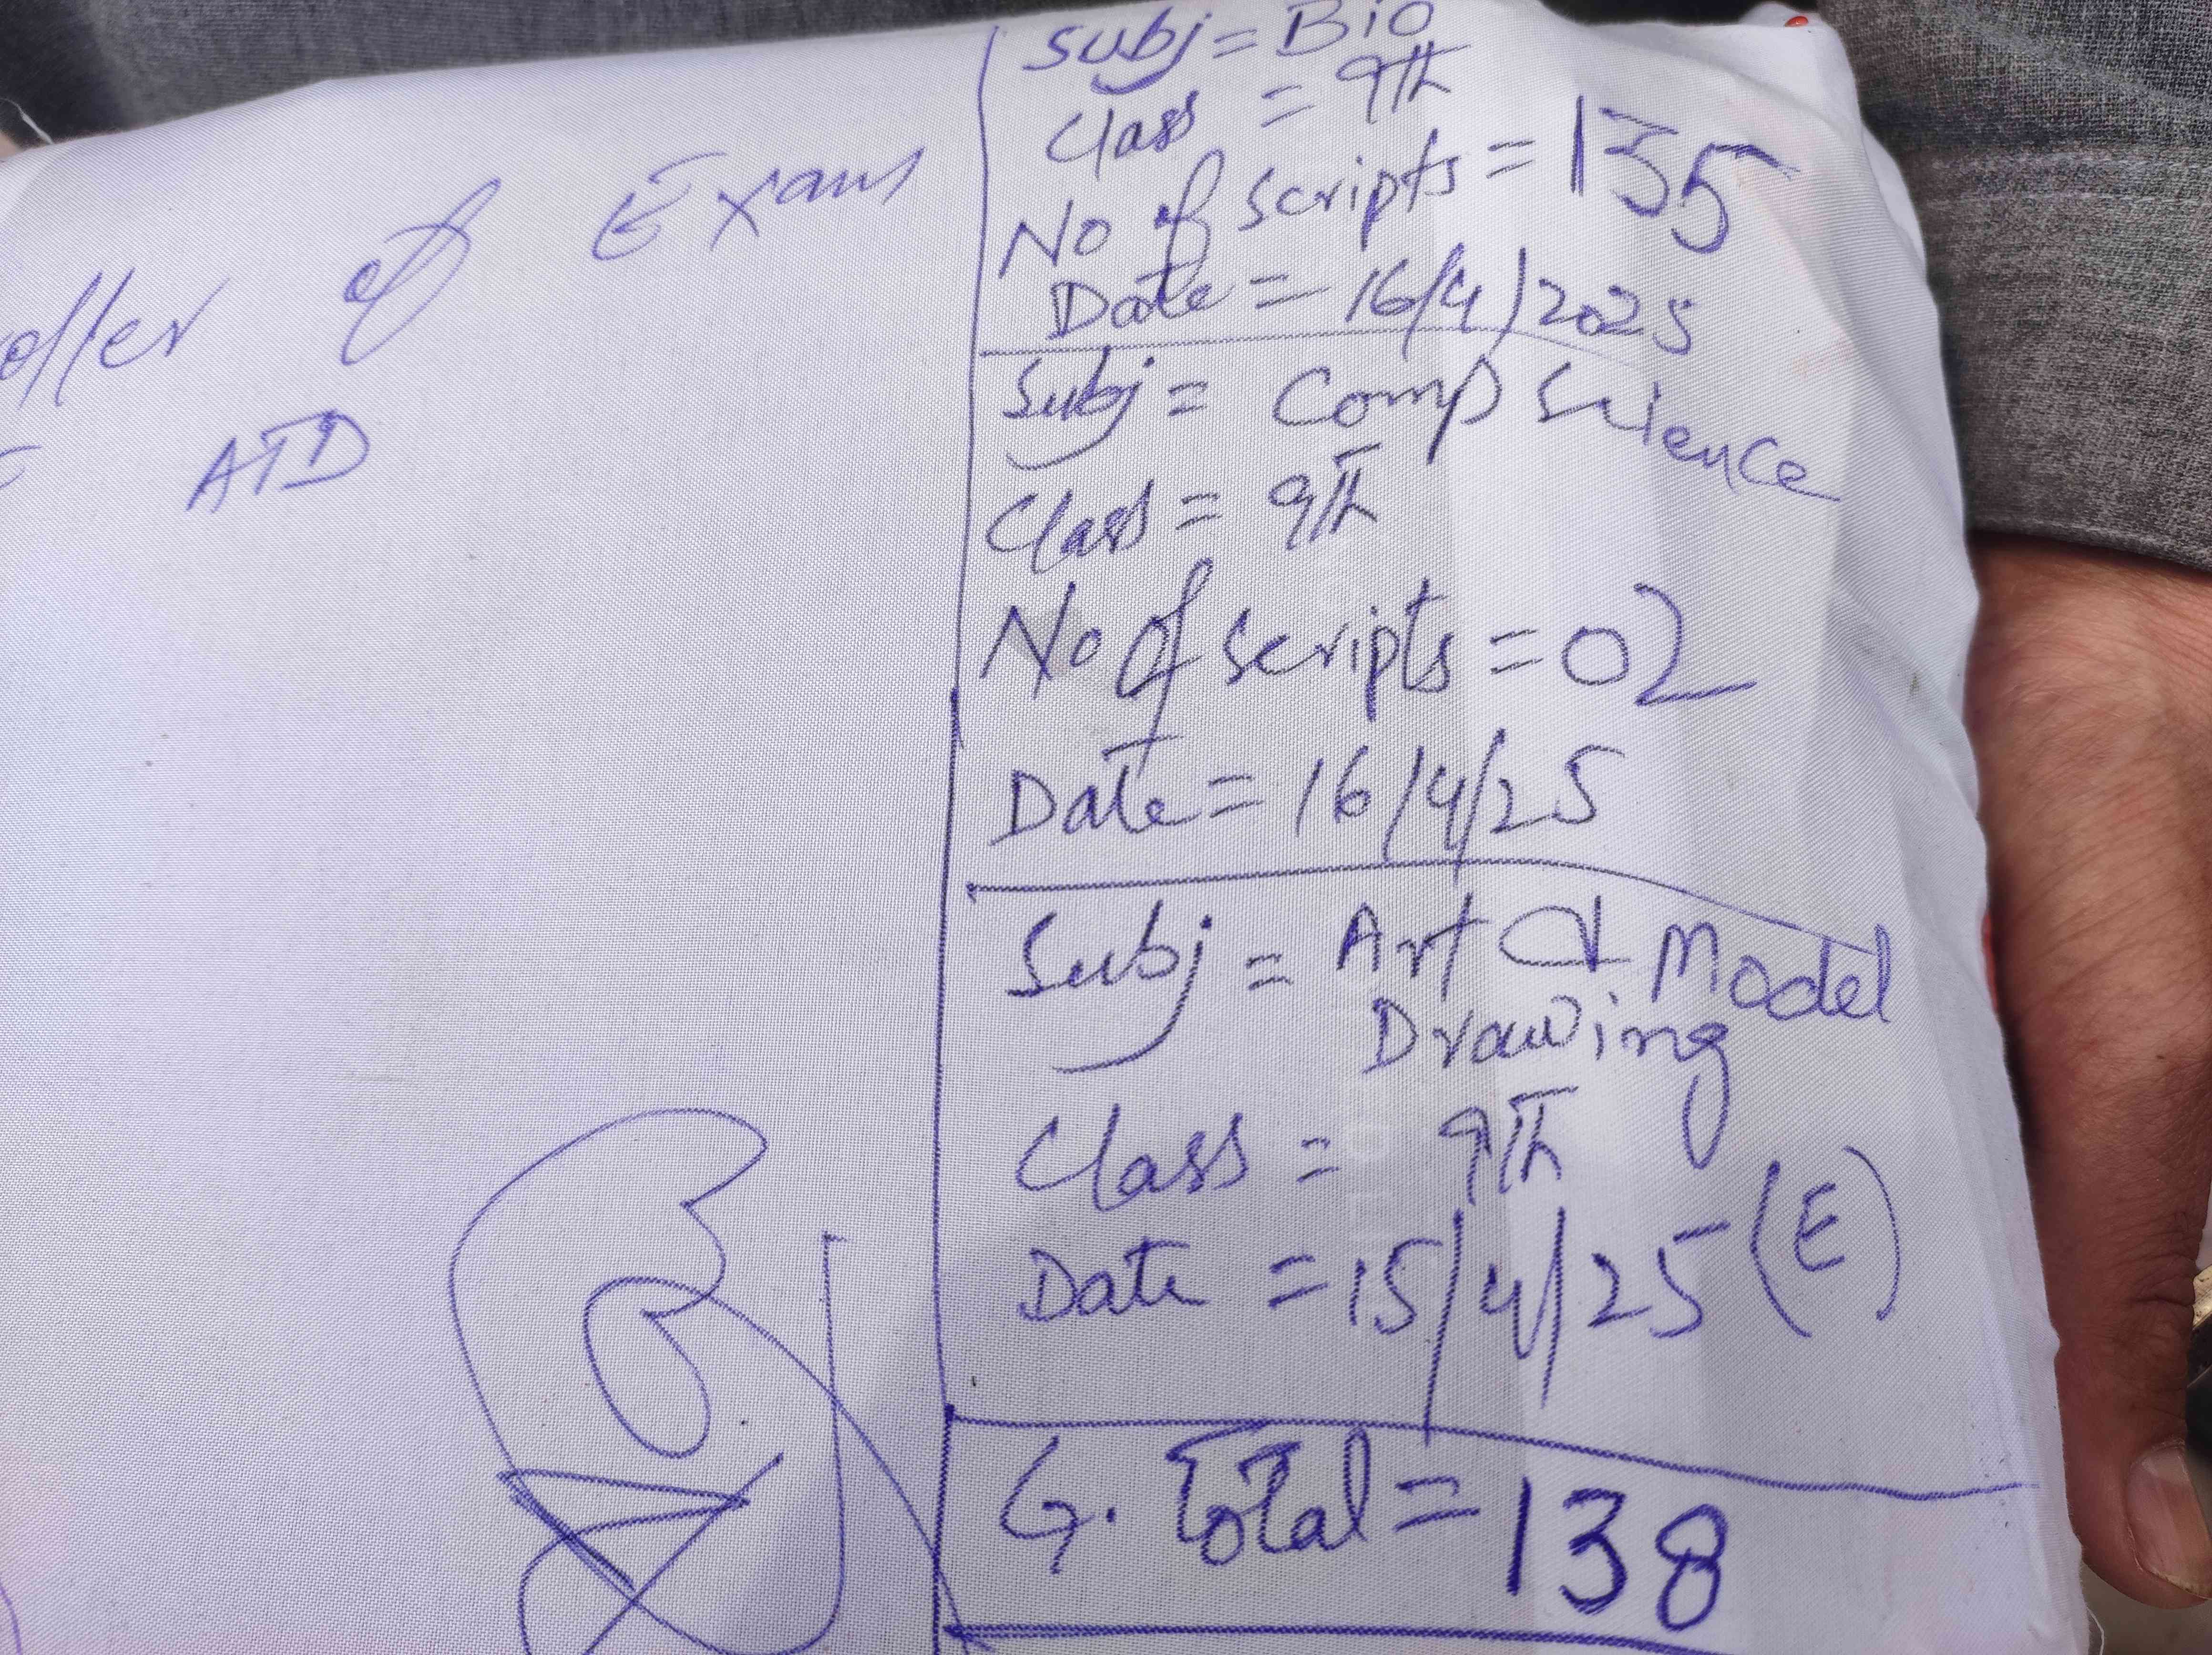 oller of Exams
ATD
Subj = Bio
Class = 9th
No of scripts = 135
Date = 16/4/2025
Subj = Comp Science
Class = 9th
No of scripts = 02
Date = 16/4/25
Subj = Art & Model
Drawing
Class = 9th
Date = 15/4/25 (E)
G. Total = 138